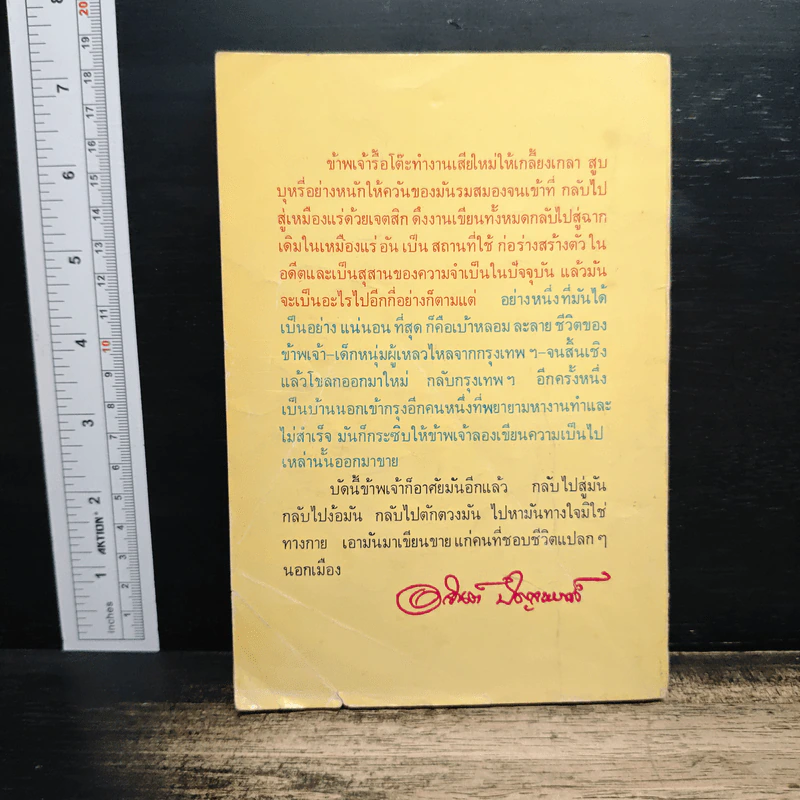 ข้าพเจ้ารื้อโต๊ะทำงานเสียใหม่ให้เกลี้ยงเกลา สูบ
บุหรี่อย่างหนักให้ควันของมันรมสมองจนเข้าที่ กลับไป
สู่เหมืองแร่ด้วยเจตสิก ดึงงานเขียนทั้งหมดกลับไปสู่ฉาก
เดิมในเหมืองแร่ อัน เป็น สถานที่ใช้ ก่อร่างสร้างตัว ใน
อดีตและเป็นสุสานของความจำเป็นในปัจจุบัน แล้วมัน
จะเป็นอะไรไปอีกกี่อย่างก็ตามแต่ อย่างหนึ่งที่มันได้
เป็นอย่าง แน่นอน ที่สุด ก็คือเบ้าหลอม ละลาย ชีวิตของ
ข้าพเจ้า–เด็กหนุ่มผู้เหลวไหลจากกรุงเทพ ฯ–จนสิ้นเชิง
แล้วโขลกออกมาใหม่ กลับกรุงเทพ ฯ อีกครั้งหนึ่ง
เป็นบ้านนอกเข้ากรุงอีกคนหนึ่งที่พยายามหางานทำและ
ไม่สำเร็จ มันก็กระซิบให้ข้าพเจ้าลองเขียนความเป็นไป
เหล่านั้นออกมาขาย
บัดนี้ข้าพเจ้าก็อาศัยมันอีกแล้ว กลับไปสู่มัน
กลับไปง้อมัน กลับไปตักตวงมัน ไปหามันทางใจมิใช่
ทางกาย เอามันมาเขียนขาย แก่คนที่ชอบชีวิตแปลก ๆ
นอกเมือง
อาจินต์ ปัญจพรรค์
inches
AKTION
1
2
3
4
5
6
7
8
1
2
3
4
5
6
7
8
9
10
11
12
13
14
15
16
17
18
19
20